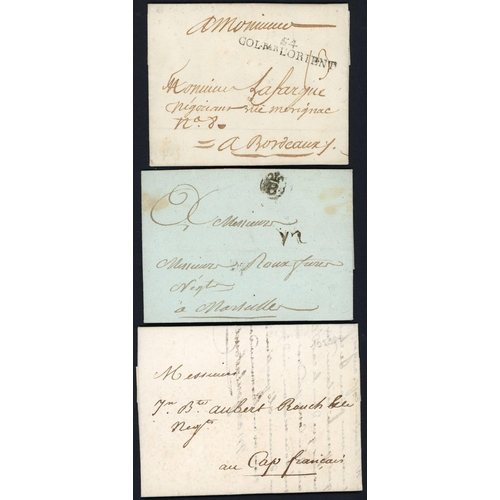 a Monsieur
54
COL.PAR LORIENT
Monsieur Lafargue
Négociant rue merignac
N.o 8.
a Bordeaux
B
Messieurs
Messieurs Roux freres
Négts
à Marseille
Messieurs
Jn Bte aubert Rouch
Negts
au Cap français